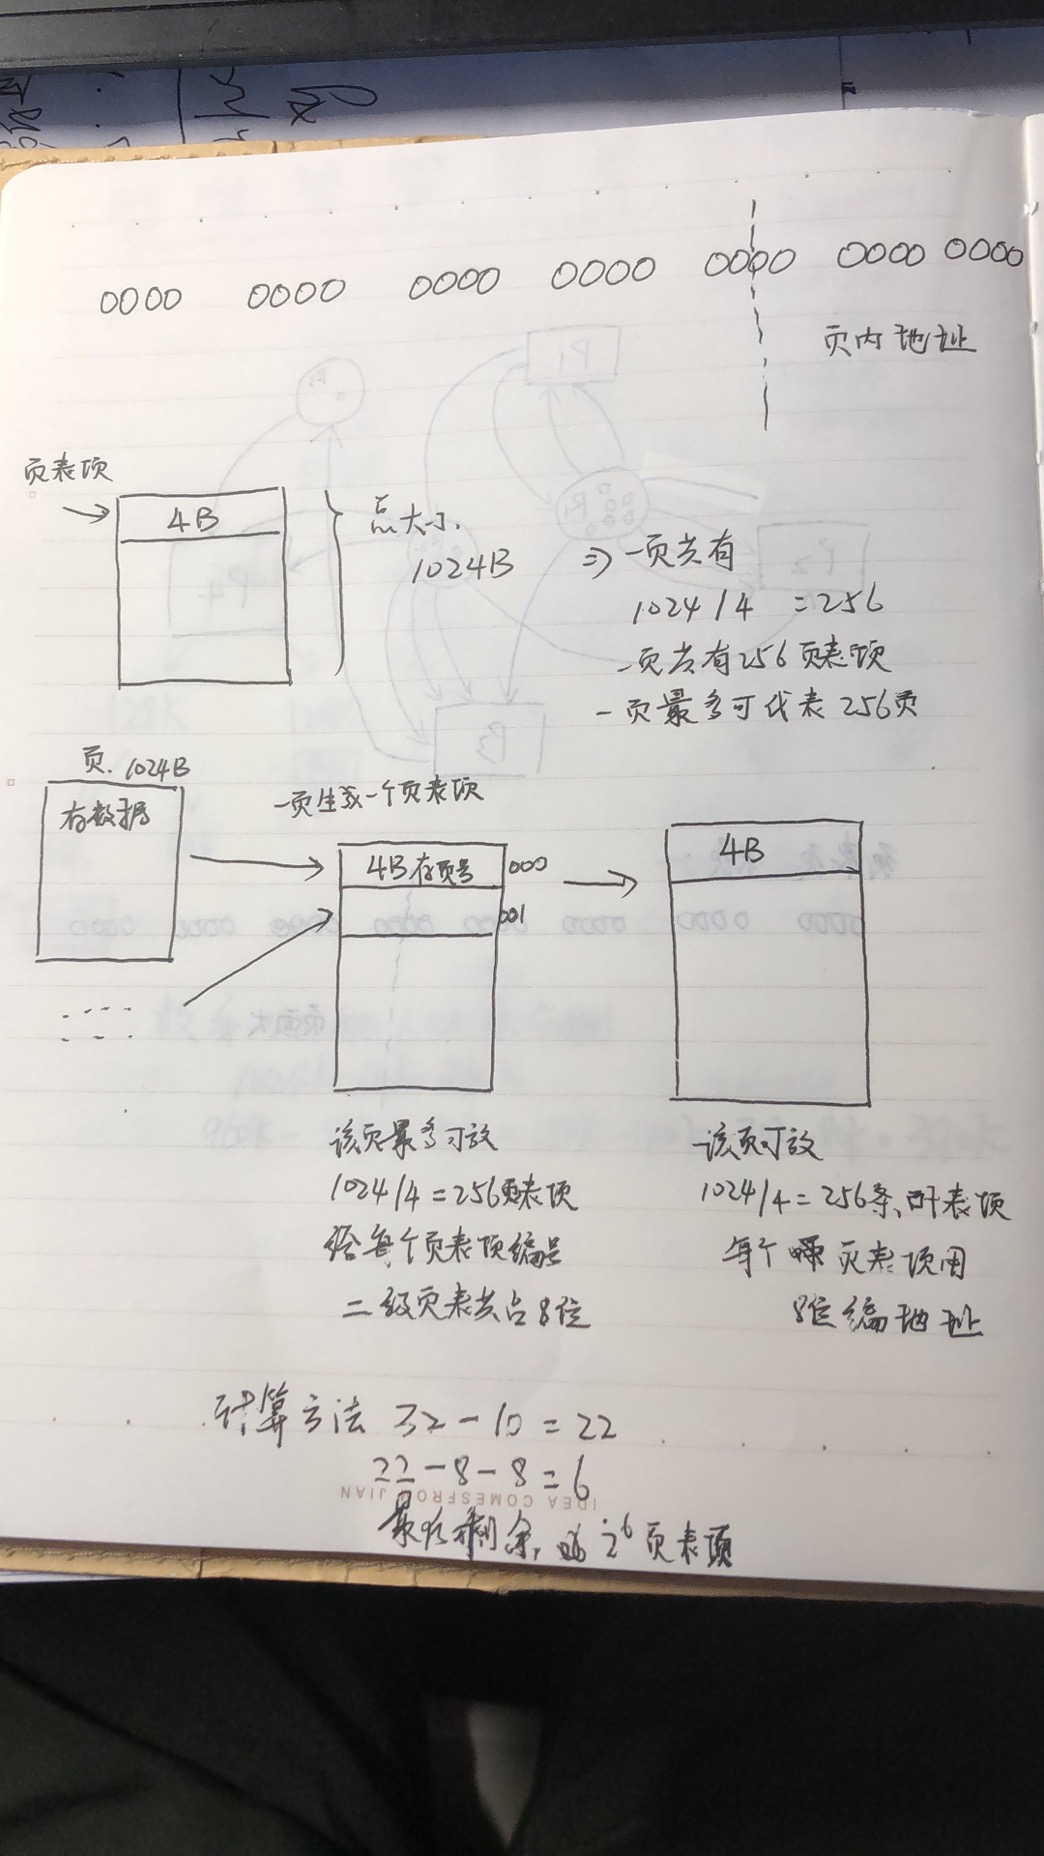 0000 0000 0000 0000 0000 0000 0000
页内地址
页表项
4B
总大小
1024B
⇒ 一页共有
1024 / 4 = 256
一页共有256页表项
一页最多可代表 256页
页. 1024B
存数据
一页生成一个页表项
4B存页号
000
001
4B
该页最多可放
1024/4=256页表项
给每个页表项编号
二级页表共占8位
该页可放
1024/4=256条, 页表项
每个 页表项用
8位编地址
计算方法 32-10=22
22-8-8=6
IDEA COMESFROM JIAN
最后剩余, 2^6 页表项
P1
P2
P3
P4
R1